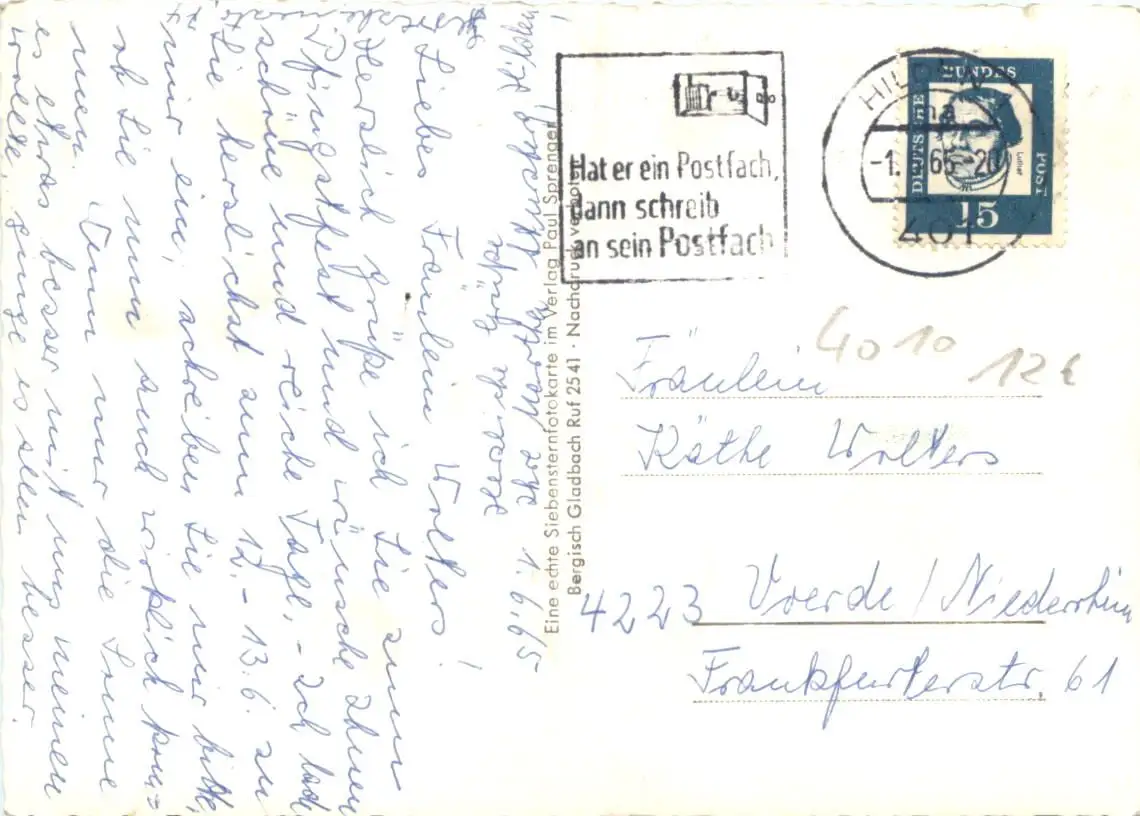 1.6.65
Liebes Fräulein Wolters!
Herzlich grüße ich Sie zum
Pfingstfest und wünsche Ihnen
schöne und reiche Tage. - Ich lade
Sie herzlichst zum 12. - 13.6. zu
mir ein, schreiben Sie mir bitte,
ob Sie nun auch wirklich kom=
men. Wenn nur die Sonne
es etwas besser mit uns meinen
wollte, ginge es allen besser.
Herzliche Grüße
Ihre
Eine echte Siebensternfotokarte im Verlag Paul Sprenger
Bergisch Gladbach Ruf 2541 · Nachdruck verboten
Hat er ein Postfach,
dann schreib
an sein Postfach
HILDEN
-1. 65-20
401
DEUTSCHE BUNDESPOST
Luther
15
4010
12€
Fräulein
Käthe Wolters
4223 Voerde/Niederrhein
Frankfurterstr. 61